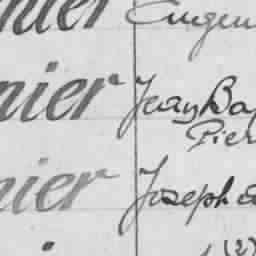 nier Eugen
nier Jean Bap
Pier
nier Joseph
(2)